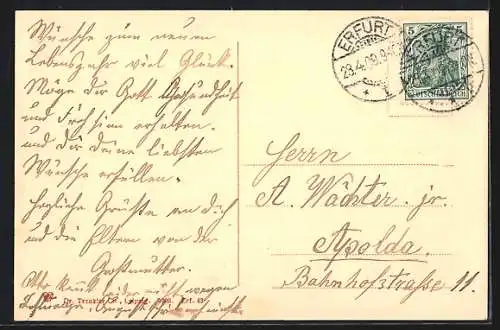 Wünsche zum neuen
Lebensjahr viel Glück.
Möge dir Gott Gesundheit
und Frohsinn erhalten
und dir deine liebsten
Wünsche erfüllen.
Herzliche Grüße an dich
und die Eltern von der
Großmutter.
leider nicht wegen
Dr. Trenkler Co., Leipzig. Erf. 43
ERFURT
28.4.09.9-10
5
5
ERFURT
Herrn
A. Wächter jr.
Apolda.
Bahnhofstrasse 11.